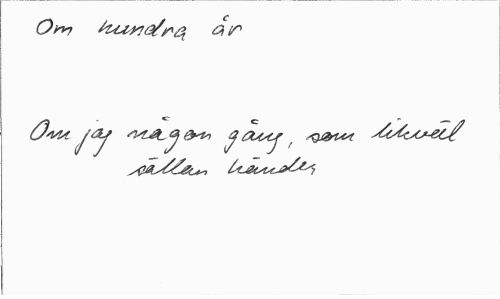 Om hundra år
Om jag någon gång, som likväl
sällan händer